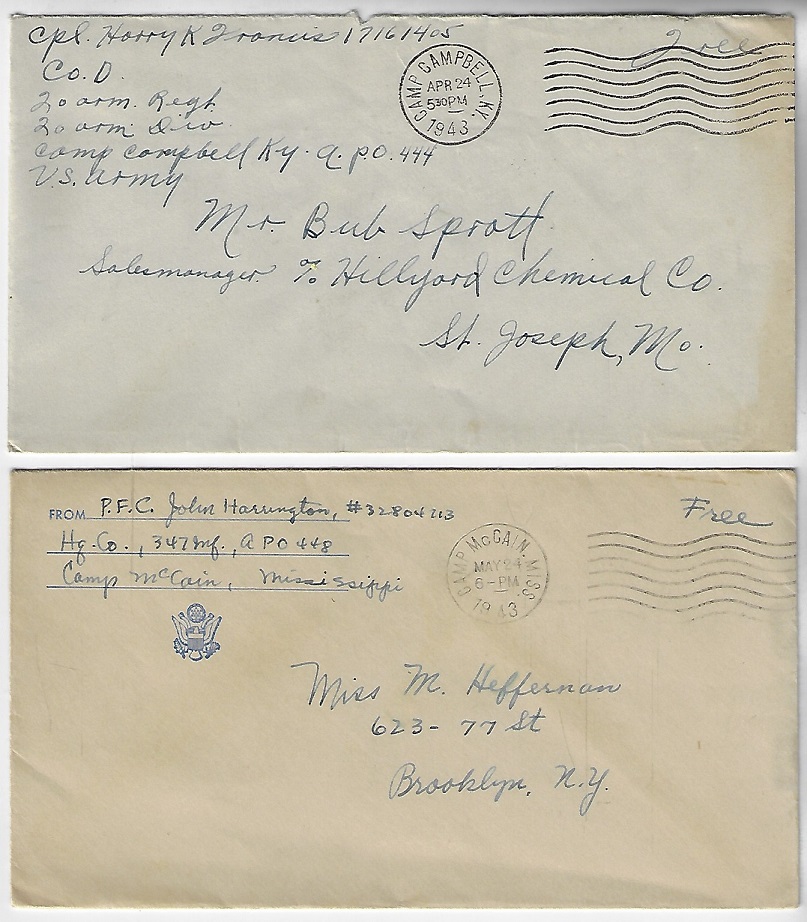 Cpl. Harry K Francis 17161405
Co. D.
20 arm. Regt
20 arm Div
Camp Campbell Ky. A.P.O. 444
U.S. Army
CAMP CAMPBELL, KY.
APR 24
530PM
1943
Free
Mr. Bub Spratt
Salesmanager. % Hillyard Chemical Co.
St. Joseph, Mo.
FROM P.F.C. John Harrington, #32804713
Hq. Co., 347 Inf., APO 448
Camp McCain, Mississippi
CAMP McCAIN, MISS.
MAY 24
6-PM
1943
Free
Miss M. Heffernan
623- 77 St
Brooklyn, N.Y.